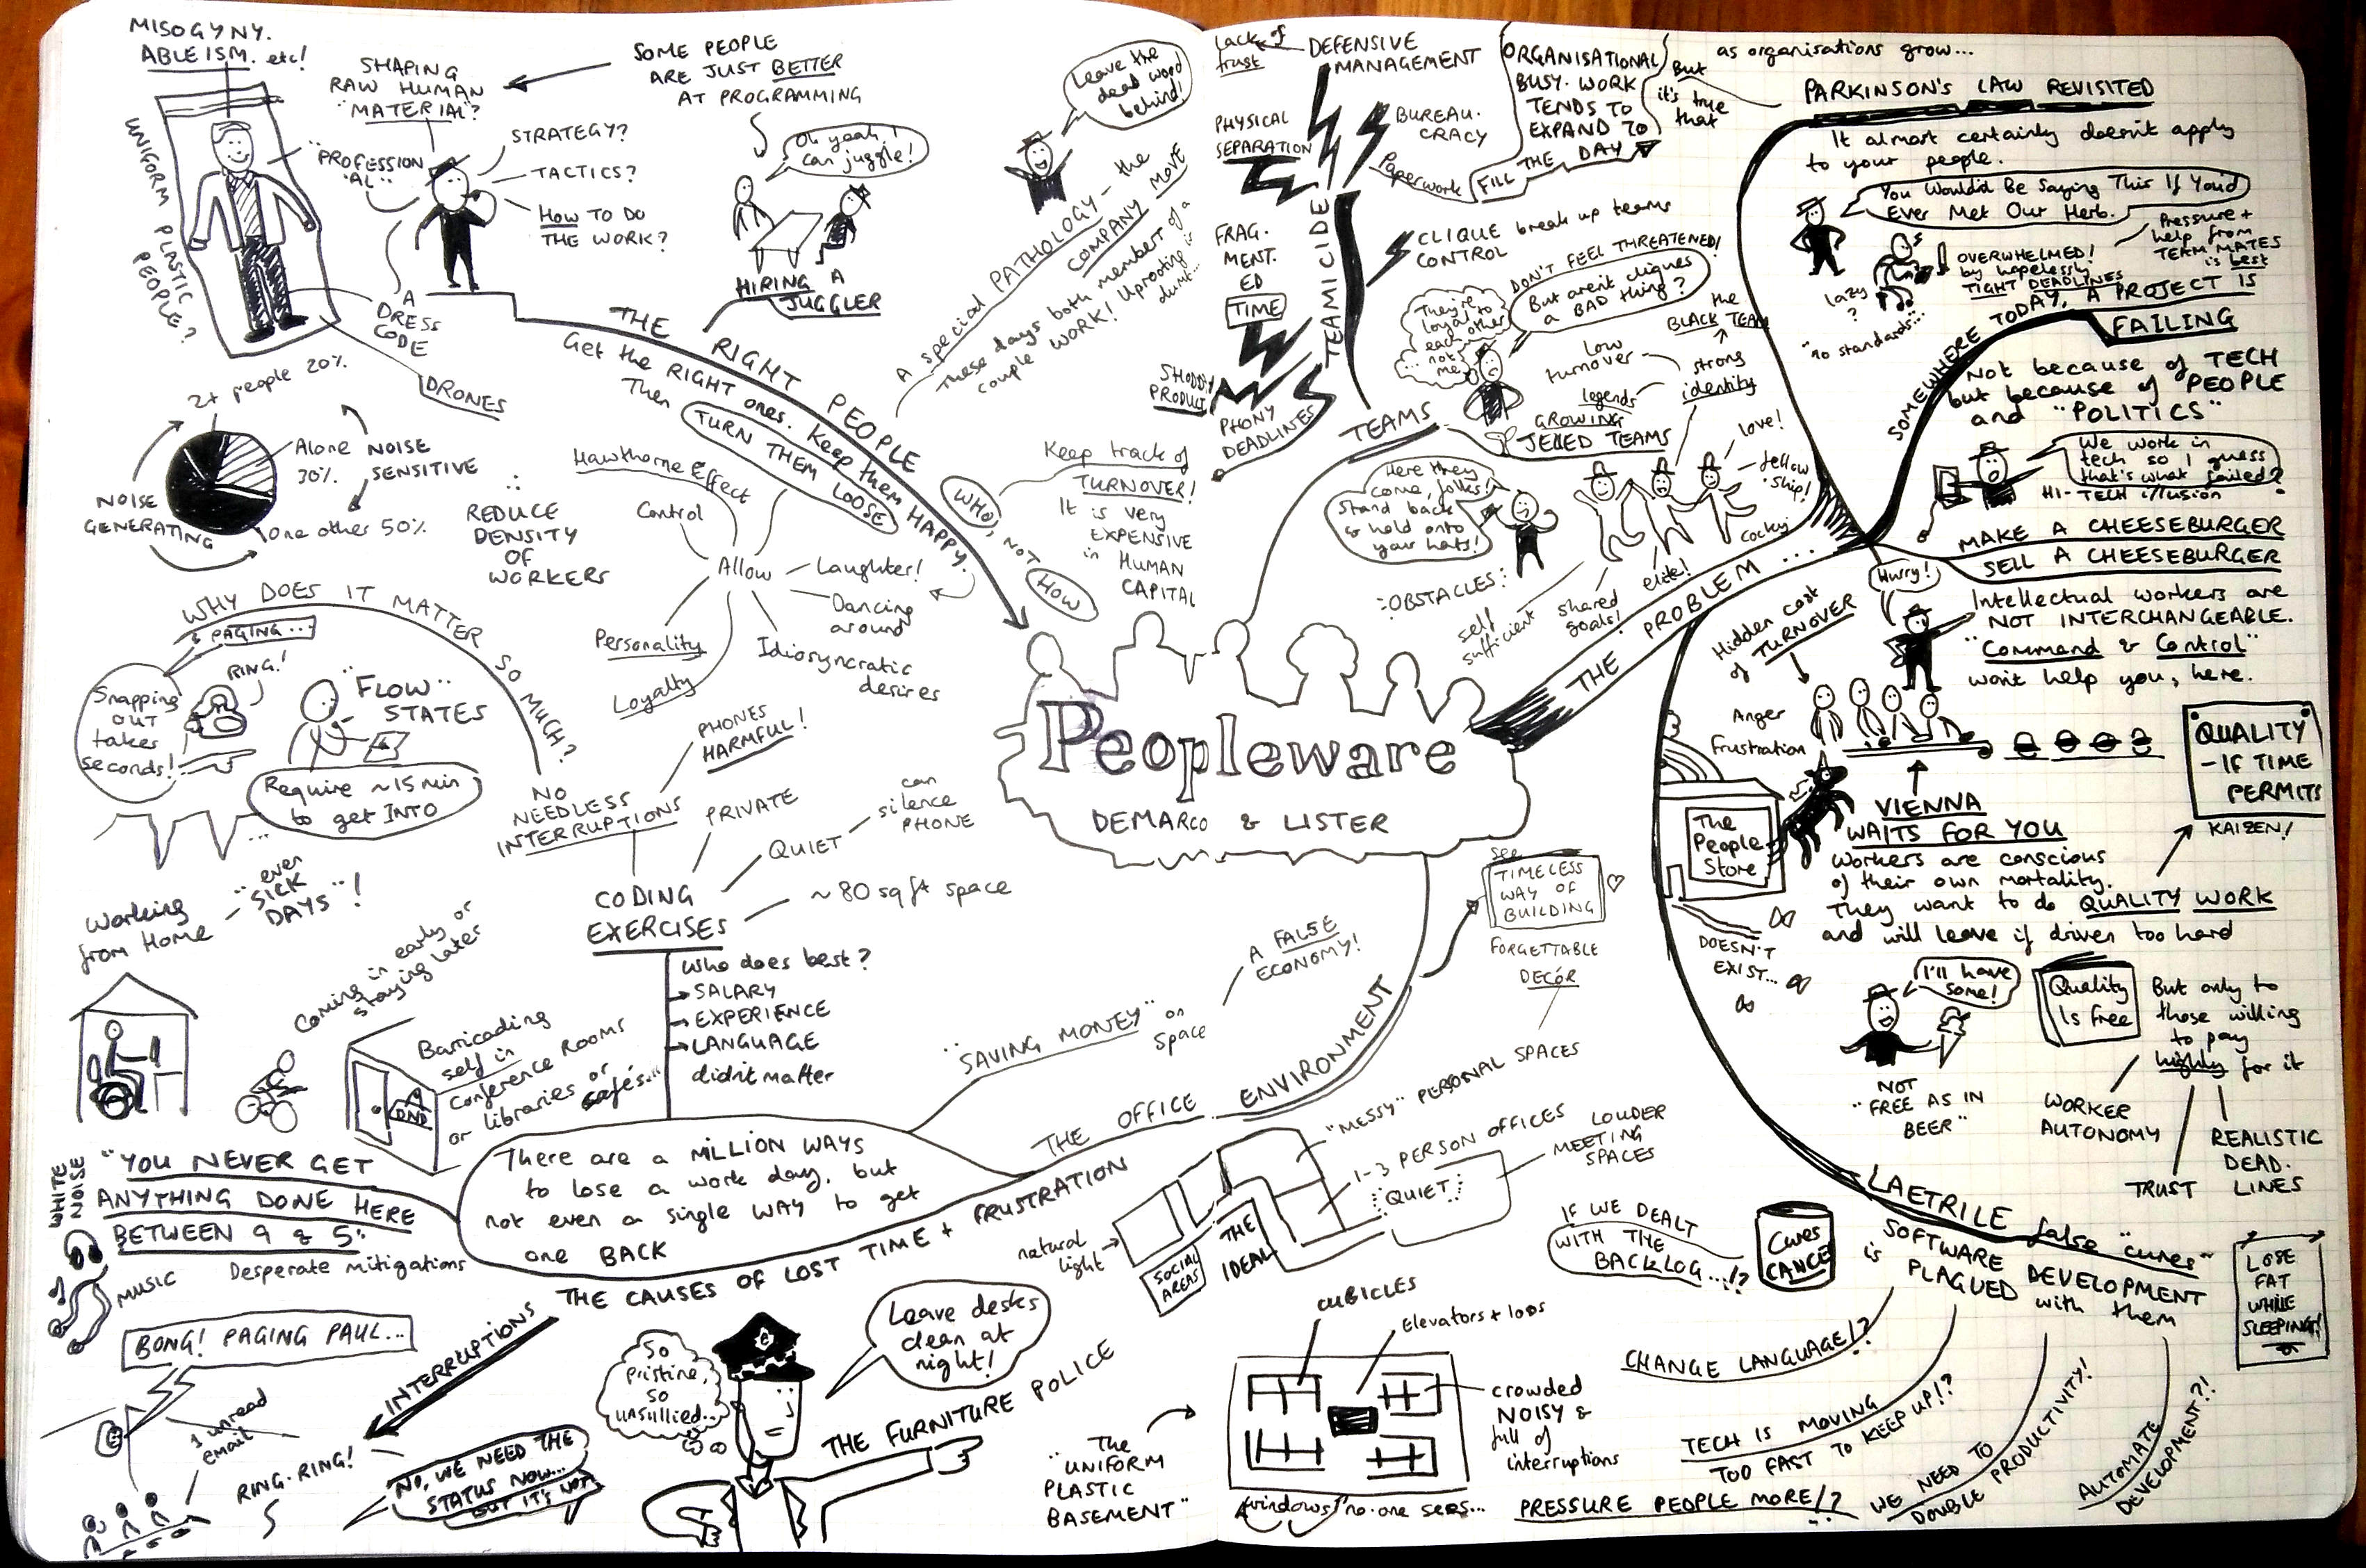 MISOGYNY.
ABLEISM. etc!
UNIFORM PLASTIC
PEOPLE?
SHAPING
RAW HUMAN
"MATERIAL"?
"PROFESSION
AL"
A
DRESS
CODE
DRONES
SOME PEOPLE
ARE JUST BETTER
AT PROGRAMMING
STRATEGY?
TACTICS?
HOW TO DO
THE WORK?
Oh yeah, I
can juggle!
HIRING A
JUGGLER
THE RIGHT PEOPLE
Get the RIGHT ones. Keep them HAPPY.
Then TURN THEM LOOSE
Leave the
dead wood
behind!
A special PATHOLOGY - the
COMPANY MOVE
These days both members of a
couple WORK! Uprooting is
dumb...
WHO, NOT HOW
Keep track of
TURNOVER!
It is very
EXPENSIVE
in HUMAN
CAPITAL
Hawthorne Effect
Control
Allow
Laughter!
Dancing
around
Idiosyncratic
desires
Personality
Loyalty
2+ people 20%
Alone
30%
One other 50%
NOISE
SENSITIVE
NOISE
GENERATING
∴
REDUCE
DENSITY
OF
WORKERS
WHY DOES IT MATTER SO MUCH?
PAGING...
RING!
Snapping
out
takes
seconds!
"FLOW"
STATES
Require ~15 min
to get INTO
...
NO
NEEDLESS
INTERRUPTIONS
PHONES
HARMFUL!
PRIVATE
QUIET
can
silence
PHONE
~80 sq ft space
CODING
EXERCISES
Who does best?
SALARY
EXPERIENCE
LANGUAGE
didn't matter
Working
from Home
"even
SICK
DAYS"!
Coming in early or
staying later
Barricading
self in
Conference Rooms
or libraries or
cafés...
DND
"YOU NEVER GET
ANYTHING DONE HERE
BETWEEN 9 & 5"
Desperate mitigations
WHITE
NOISE
MUSIC
There are a MILLION WAYS
to lose a work day, but
not even a single WAY to get
one BACK
THE CAUSES OF LOST TIME + FRUSTRATION
INTERRUPTIONS
BONG! PAGING PAUL...
1 unread
email
RING-RING!
NO, WE NEED THE
STATUS NOW...
BUT IT'S NOT
So
pristine,
so
unsullied...
Leave desks
clean at
night!
THE FURNITURE POLICE
Peopleware
DEMARCO & LISTER
THE OFFICE ENVIRONMENT
"SAVING MONEY" on
Space
A FALSE
ECONOMY!
see
TIMELESS
WAY OF
BUILDING
FORGETTABLE
DECÓR
"MESSY" PERSONAL SPACES
1-3 PERSON OFFICES
LOUDER
MEETING
SPACES
QUIET
natural
light
SOCIAL
AREAS
THE
IDEAL
CUBICLES
Elevators + loos
crowded
NOISY &
full of
interruptions
The
"UNIFORM
PLASTIC
BASEMENT"
windows no-one sees...
lack of
trust
DEFENSIVE
MANAGEMENT
PHYSICAL
SEPARATION
BUREAU.
CRACY
Paperwork
ORGANISATIONAL
BUSY-WORK
TENDS TO
EXPAND TO
FILL THE DAY
But
it's true
that
as organisations grow...
FRAG.
MENT.
ED
TIME
TEAMICIDE
CLIQUE
CONTROL
break up teams
SHODDY
PRODUCT
PHONY
DEADLINES
DON'T FEEL THREATENED!
But aren't cliques
a BAD thing?
They're
loyal to
each
other
... not
me
TEAMS
GROWING
JELLED TEAMS
low
turnover
legends
strong
identity
the
BLACK TEAM
love!
fellow
ship!
cocky
elite!
shared
goals!
self
sufficient
OBSTACLES:
Here they
come, folks!
Stand back
& hold onto
your hats!
PARKINSON'S LAW REVISITED
It almost certainly doesn't apply
to your people.
You Wouldn't Be Saying This If You'd
Ever Met Our Herb.
lazy
?
"no standards"...
OVERWHELMED!
by hopelessly
TIGHT DEADLINES
Pressure +
help from
TEAM MATES
is best
SOMEWHERE TODAY, A PROJECT IS
FAILING
Not because of TECH
but because of PEOPLE
and "POLITICS"
We work in
tech so I guess
that's what failed?
HI-TECH illusion
THE PROBLEM...
MAKE A CHEESEBURGER
SELL A CHEESEBURGER
Hurry!
Intellectual workers are
NOT INTERCHANGEABLE.
"Command & Control"
won't help you, here.
Hidden cost
of TURNOVER
Anger
frustration
The
People
Store
DOESN'T
EXIST...
VIENNA
WAITS FOR YOU
Workers are conscious
of their own mortality.
They want to do QUALITY WORK
and will leave if driven too hard
QUALITY
- IF TIME
PERMITS
KAIZEN!
I'll have
some!
NOT
"FREE AS IN
BEER"
Quality
Is Free
But only to
those willing
to pay
highly for it
WORKER
AUTONOMY
TRUST
REALISTIC
DEAD.
LINES
LAETRILE false "cures"
SOFTWARE DEVELOPMENT
is PLAGUED with them
Cures
CANCER
LOSE
FAT
WHILE
SLEEPING!
IF WE DEALT
WITH THE
BACKLOG...!?
CHANGE LANGUAGE!?
TECH IS MOVING
TOO FAST TO KEEP UP!?
PRESSURE PEOPLE MORE!?
WE NEED TO
DOUBLE PRODUCTIVITY!
AUTOMATE
DEVELOPMENT?!